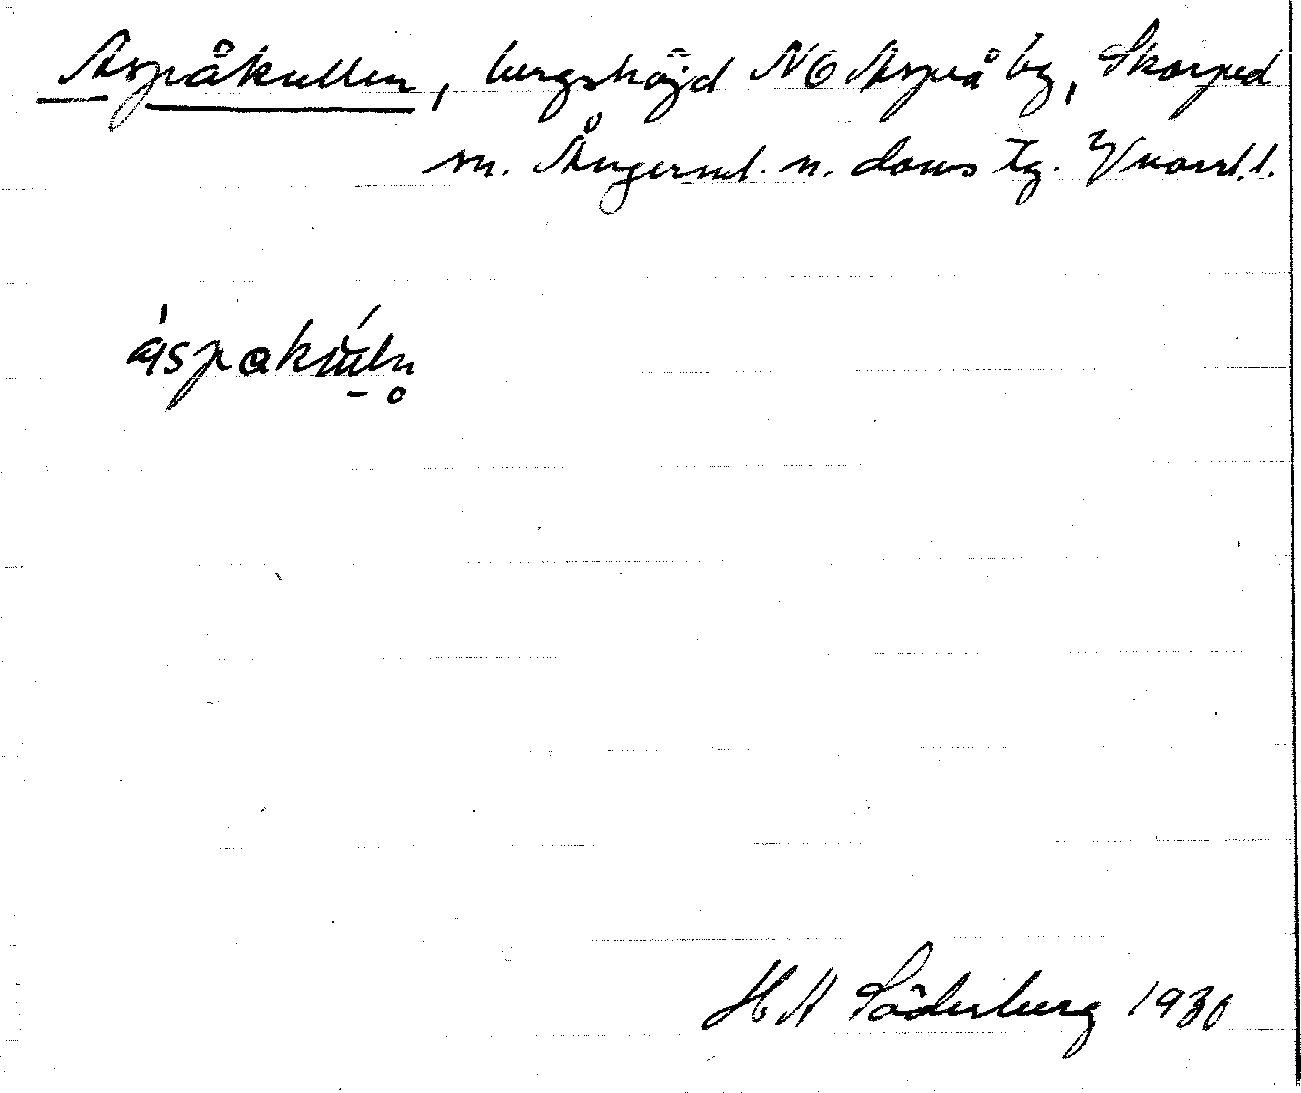 Aspåkullen, bergshöjd NO Aspeå by, Skorped
sn. Ångerml. n. doms tg. Vnorrl. l.
áspakúln̥
H A Söderberg 1930